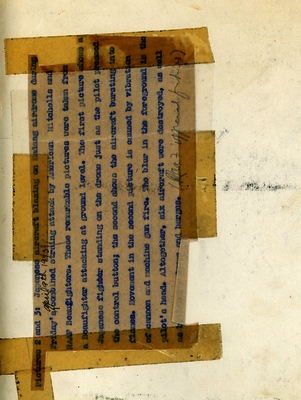 Pictures 2 and 3: Japanese aircraft blazing on airdrome during
Friday's combined strafing attack by American Mitchells and
RAAF Beaufighters. These remarkable pictures were taken from
a Beaufighter attacking at ground level. The first picture shows a
Japanese fighter standing on the drome just as the pilot pressed
the control button; the second shows the aircraft bursting into
flames. Movement in the second picture is caused by vibration
of cannon and machine gun fire. The blur in the foreground is the
pilot's head. Altogether, six aircraft were destroyed, as well
as and barges.